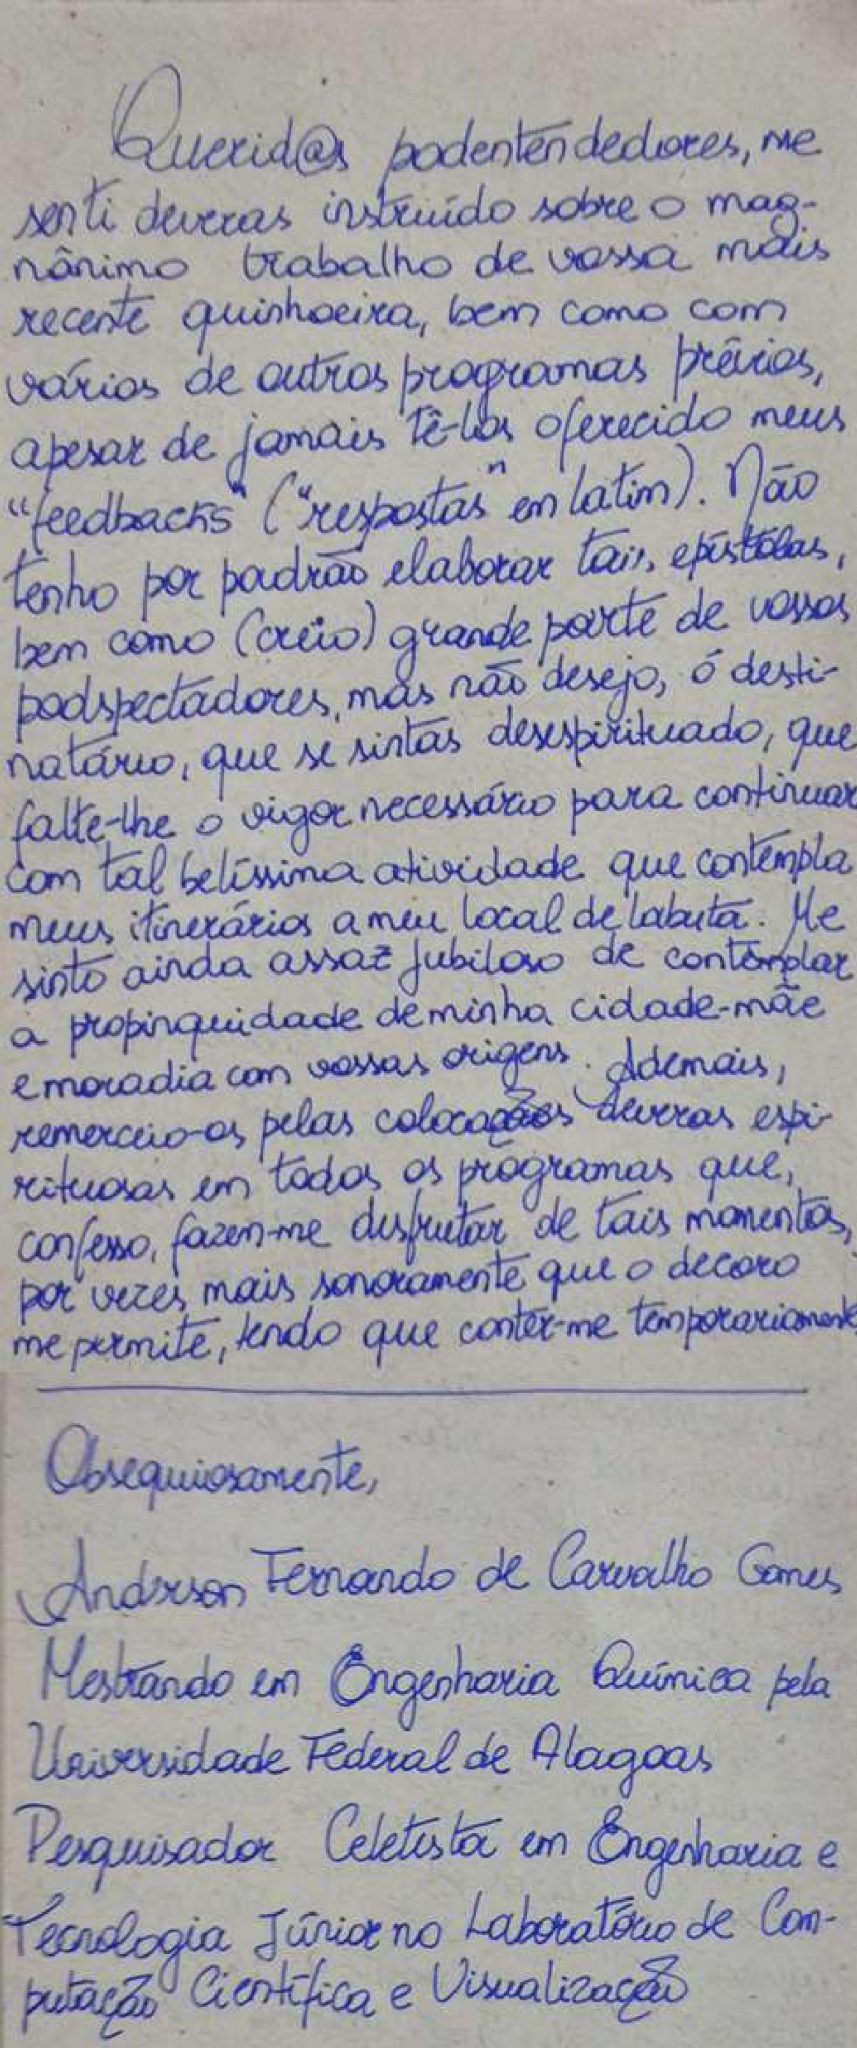 Querid@s podentendedores, me
senti deveras instruído sobre o mag-
nânimo trabalho de vossa mais
recente quinhoeira, bem como com
vários de outros programas prévios,
apesar de jamais tê-los oferecido meus
"feedbacks" ("respostas" em latim). Não
tenho por padrão elaborar tais epístolas,
bem como (creio) grande parte de vossos
podspectadores, mas não desejo, ó desti-
natário, que se sintas desespirituado, que
falte-lhe o vigor necessário para continuar
com tal belíssima atividade que contempla
meus itinerários a meu local de labuta. Me
sinto ainda assaz jubiloso de contemplar
a propinquidade de minha cidade-mãe
e moradia com vossas origens. Ademais,
remerceio-os pelas colocações deveras espi-
rituosas em todos os programas que,
confesso, fazem-me desfrutar de tais momentos,
por vezes mais sonoramente que o decoro
me permite, tendo que conter-me temporariamente.
Obsequiosamente,
Anderson Fernando de Carvalho Gomes
Mestrando em Engenharia Química pela
Universidade Federal de Alagoas
Pesquisador Celetista em Engenharia e
Tecnologia Júnior no Laboratório de Com-
putação Científica e Visualização